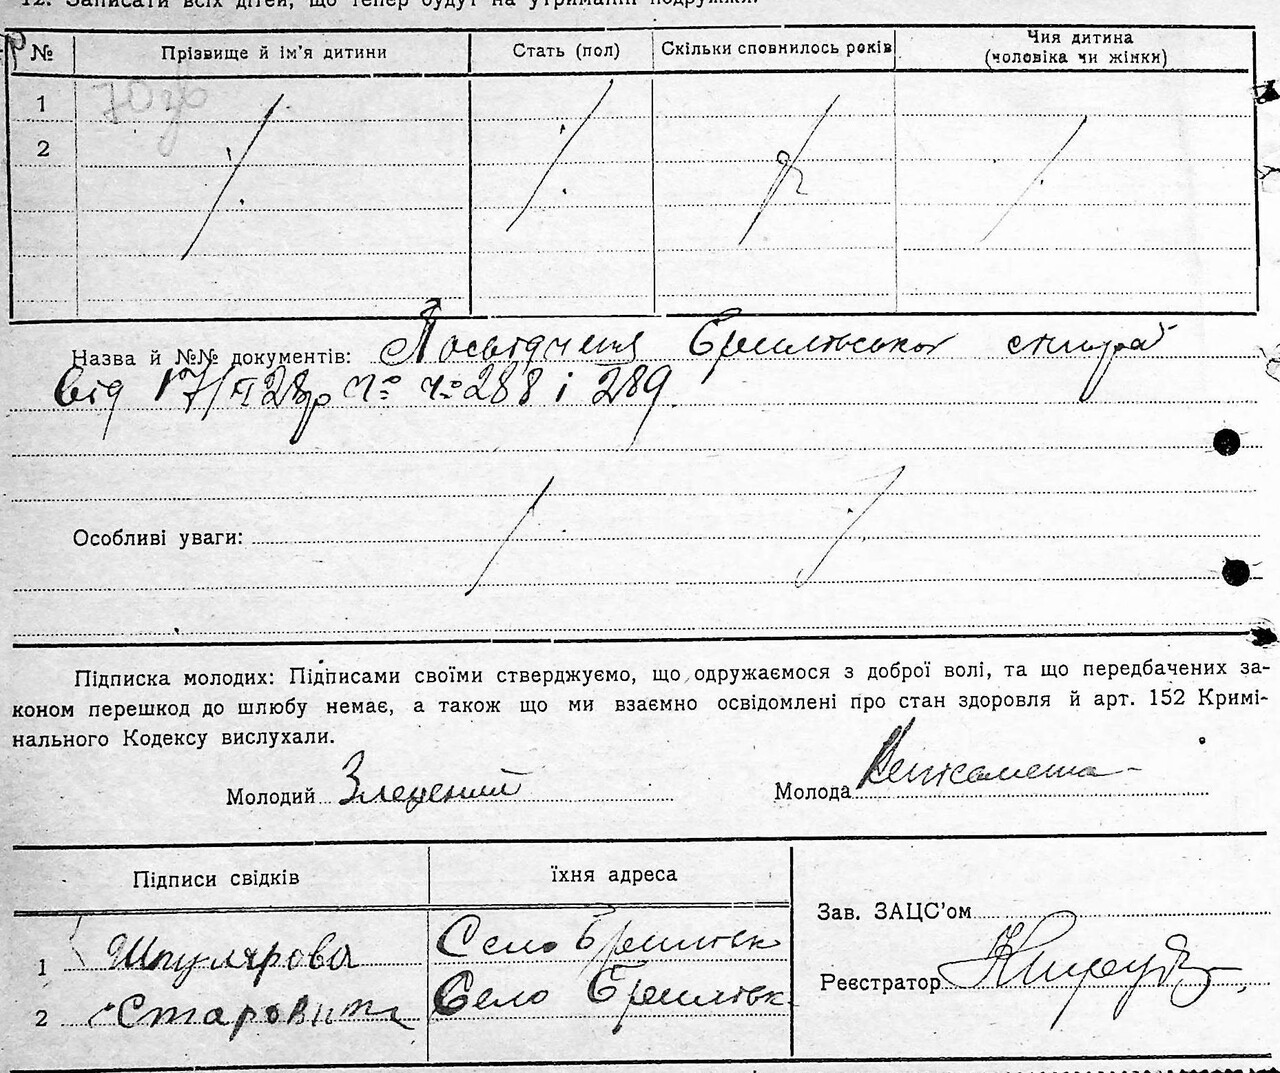 12. Записати всіх дітей, що тепер будут на утриманні подружжя.
№ Прізвище й ім'я дитини Стать (пол) Скільки сповнилось років Чия дитина
(чоловіка чи жінки)
1
2
Назва й №№ документів: Посвідчення
від 17/ 28р № № 288 і 289.
Особливі уваги:
Підписка молодих: Підписами своїми стверджуємо, що одружаємося з доброї волі, та що передбачених за-
коном перешкод до шлюбу немає, а також що ми взаємно освідомлені про стан здоровля й арт. 152 Кримі-
нального Кодексу вислухали.
Молодий Молода
Підписи свідків їхня адреса
Зав. ЗАЦС'ом
1 Шпулярова Село
Реєстратор
2 Село